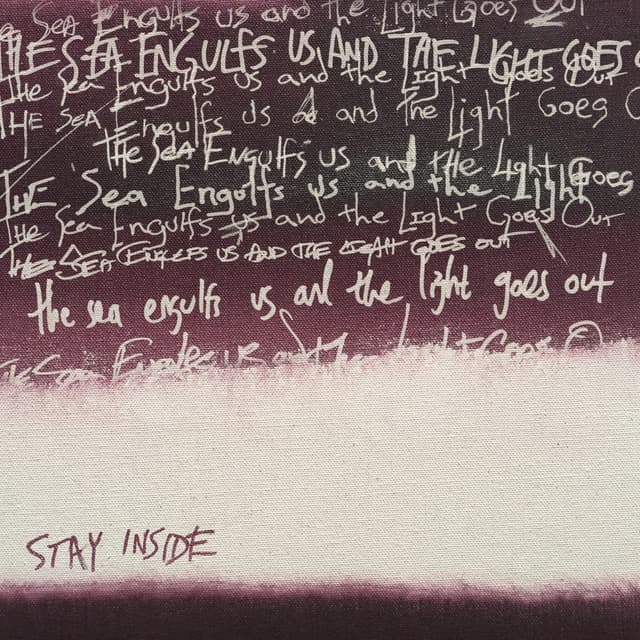 Sea Engulfs us and the Light Goes Out
THE SEA ENGULFS US AND THE LIGHT GOES
the Sea Engulfs us and the Light Goes Out
THE SEA Engulfs us and the Light Goes
the Sea ENgulfs us and tHe Light Goes
THE Sea Engulfs us and the Light
the Sea Engulfs us and the Light Goes Out
the SEA ENGULFS US AND THE LIGHT GOES out
the sea engulfs us and the light goes out
Sea Engulfs us and the Light Goes
STAY INSIDE